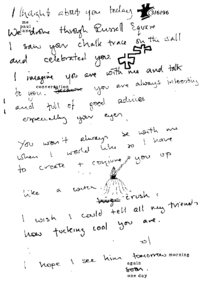 I thought about you today
me
paul
and
We drove through Russell Square
I saw your chalk trace on the wall
and celebrated you.
I imagine you are with me and talk
conversation
to you. you are always interesting
and full of good advice
especially your eyes.
You won't always be with me
when I would like so I have
to create + conjure you up
like a witch
crush.
I wish I could tell all my friends
how fucking cool you are.
I hope I see him tomorrow morning
again
soon.
one day